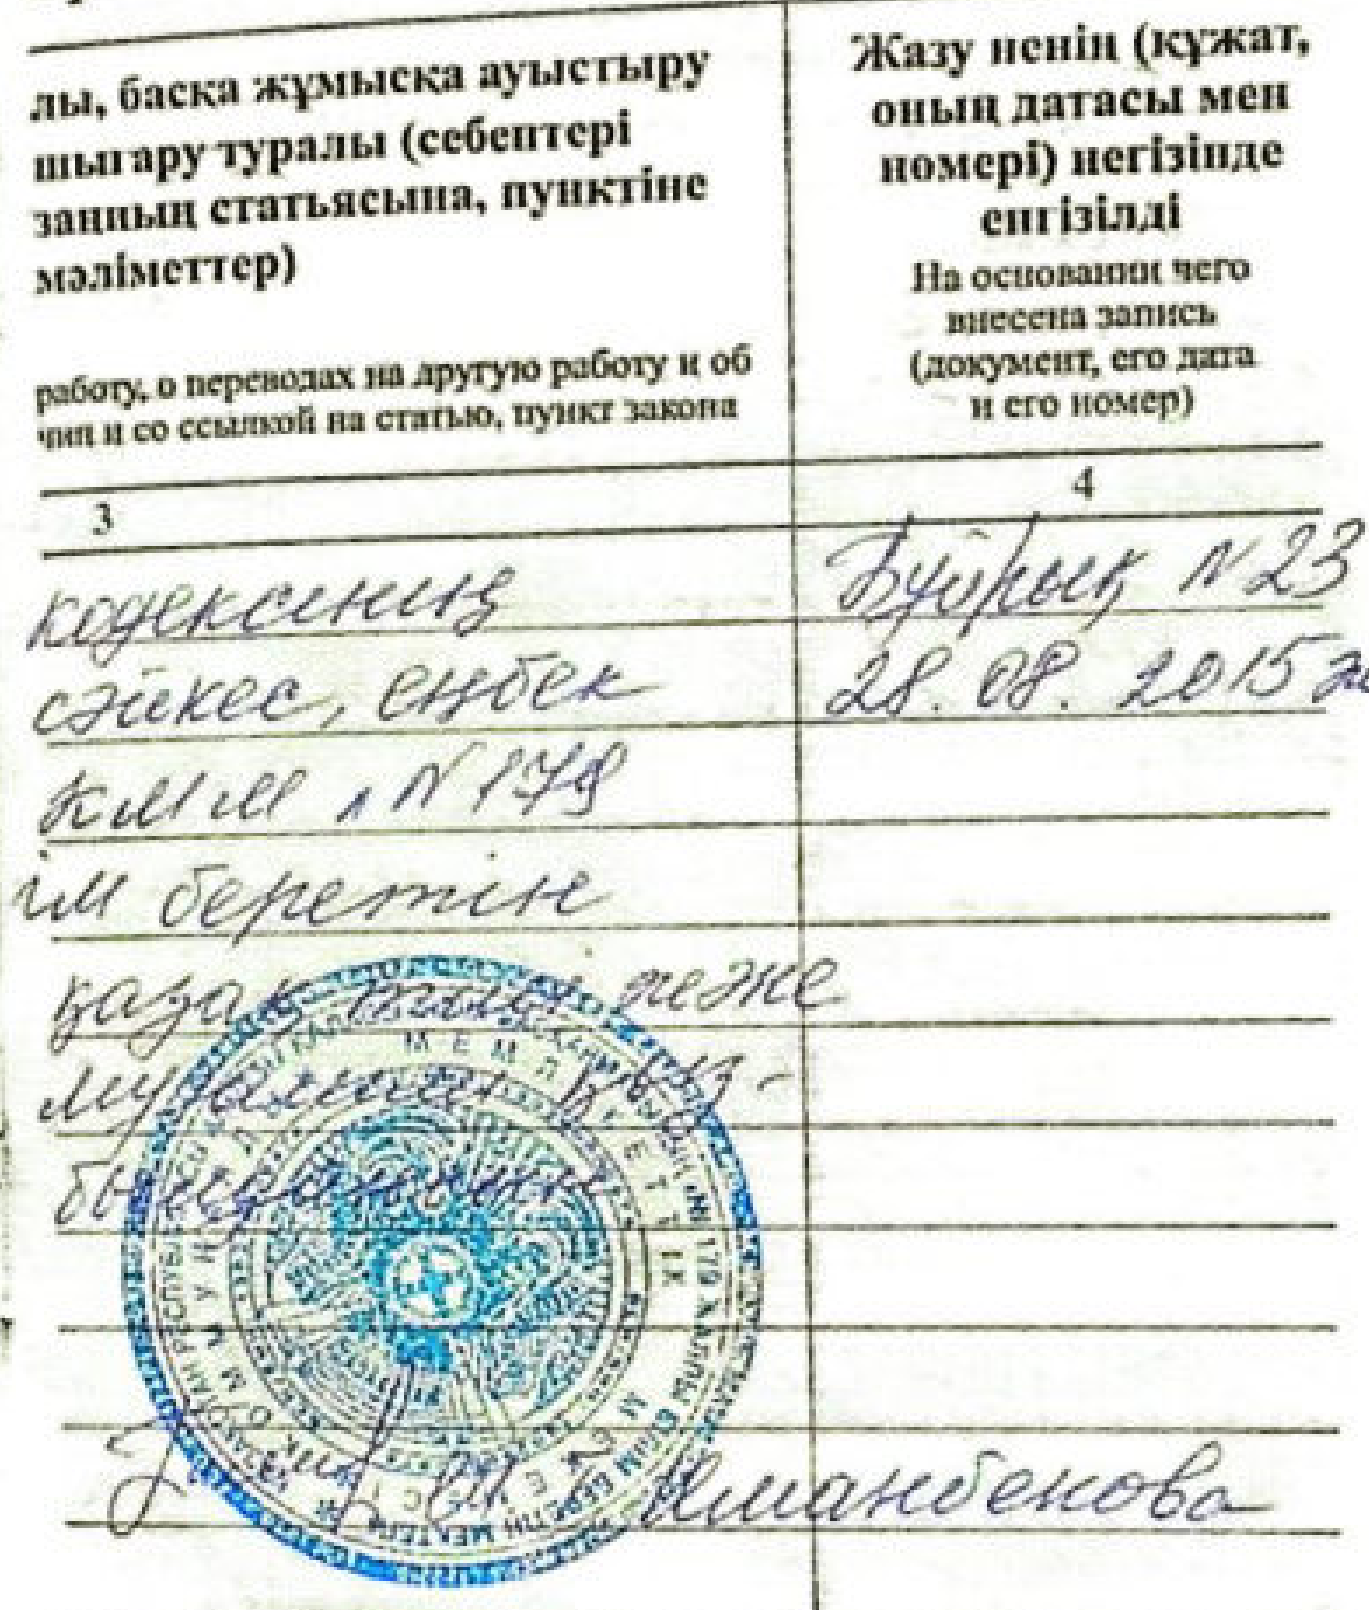 лы, басқа жұмысқа ауыстыру
шығару туралы (себептері
заңның статьясына, пунктіне
мәліметтер)
работу, о переводах на другую работу и об
чин и со ссылкой на статью, пункт закона
Жазу ненің (құжат,
оның датасы мен
номері) негізінде
енгізілді
На основании чего
внесена запись
(документ, его дата
и его номер)
3
4
кодексінің
сәйкес, еңбек
КММ "N 179
ім беретін
қазақ тілі және
мұғалімі қыз-
Бұйрық N 23
28. 08. 2015 ж
Иманбекова
МЕМЛЕКЕТТІК
КОММУНАЛДЫҚ
N 179 ЖАЛПЫ БІЛІМ БЕРЕТІН МЕКТЕП